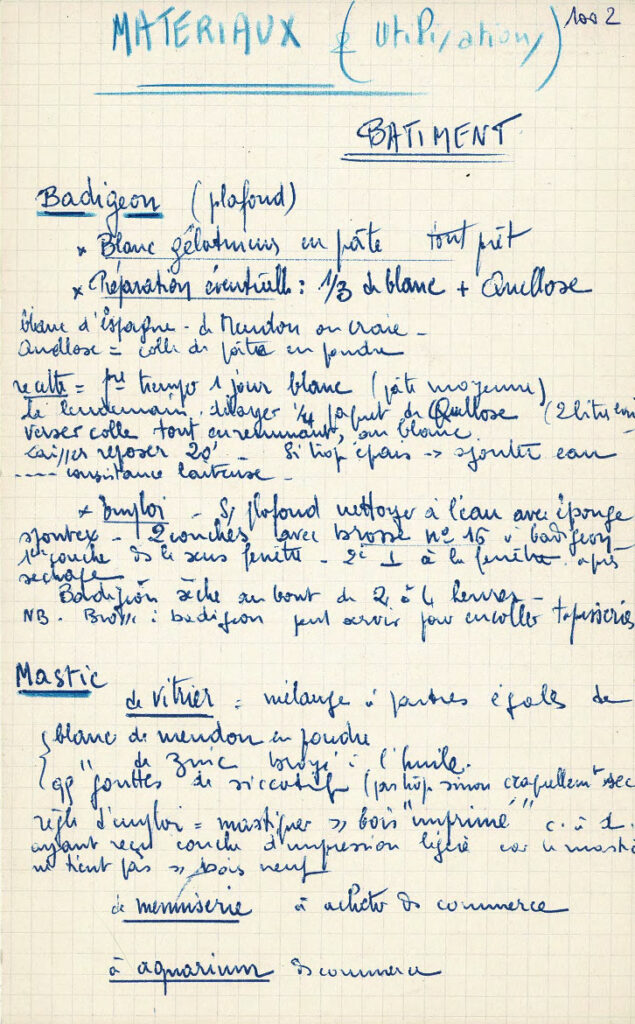 MATERIAUX & (Utilisations) 1002
BATIMENT
Badigeon (plafond)
* Blanc gélatineux en pâte tout prêt
* Préparation éventuelle : 1/3 de blanc + Quellose
blanc d'Espagne - de Meudon ou craie -
Quellose = colle de pâte en poudre
recette = tremp 1 jour blanc (pâte moyenne)
le lendemain, délayer 1/4 paquet de Quellose (2 litres eau
verser colle tout en remuant, au blanc.
Laisser reposer 20' - Si trop épais → ajouter eau
---- consistance laiteuse -
* Emploi - S/ plafond nettoyé à l'eau avec éponge
spontex - 2 couches avec brosse n° 16 à badigeon
1re couche ds le sens fenêtre - 2e ⊥ à la fenêtre après
séchage
Badigeon sèche au bout de 2 à 4 heures -
NB. Brosse à badigeon peut servir pour encoller tapisseries
Mastic
de vitrier = mélange à parties égales de
{ blanc de meudon en poudre
{ " de zinc broyé à l'huile.
qq gouttes de siccatif (pas trop sinon craquellemt sec
règle d'emploi = mastiquer s/ bois "imprimé" c. à d.
ayant reçu couche d'impression légère car le mastic
ne tient pas s/ bois neuf
de menuiserie à acheter ds commerce
à aquarium ds commerce